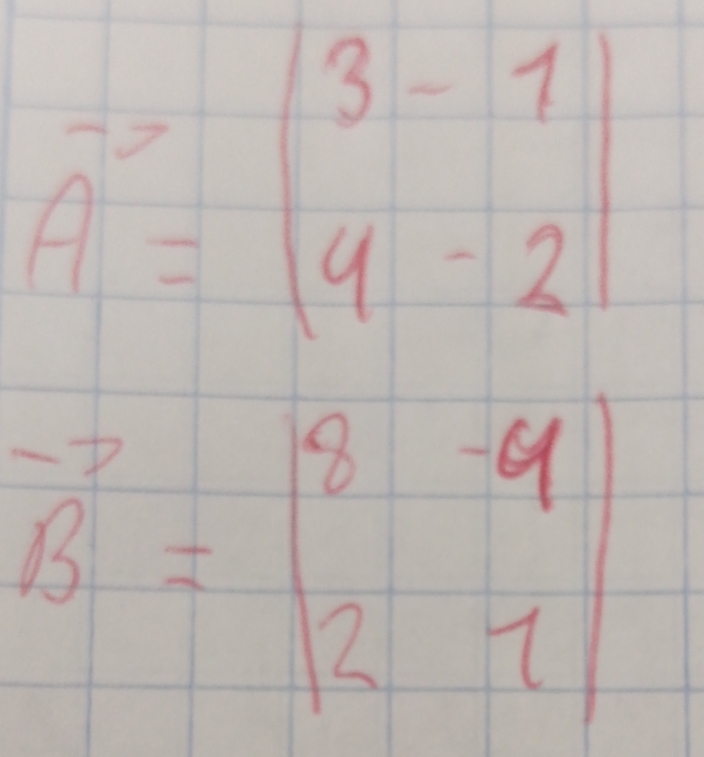 →
A = |3 - 1|
|4 - 2|
→
B = |8 -4|
|2 1|